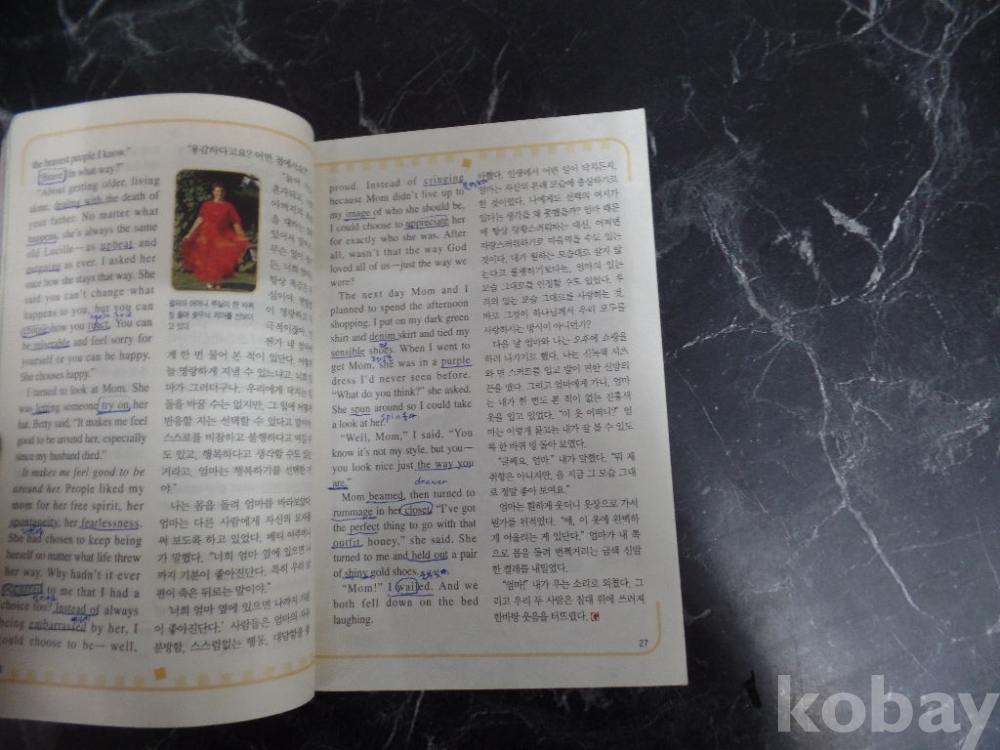 the bravest people I know."
"Brave in what way?"
"About getting older, living
alone, dealing with the death of
your father. No matter what
happens, she's always the same
old Lucille—as upbeat and
outgoing as ever. I asked her
once how she stays that way. She
said you can't change what
happens to you, but you can
choose how you react. You can
be miserable and feel sorry for
yourself or you can be happy.
She chooses happy."
I turned to look at Mom. She
was letting someone try on her
hat. Betty said, "It makes me feel
good to be around her, especially
since my husband died."
It makes me feel good to be
around her. People liked my
mom for her free spirit, her
spontaneity, her fearlessness.
She had chosen to keep being
herself no matter what life threw
her way. Why hadn't it ever
to me that I had a
choice too? Instead of always
being embarrassed by her, I
could choose to be— well,
"용감하다고요? 어떤 점에서요?"
게 한 번 물어 본 적이 있단다.
늘 명랑하게 지낼 수 있느냐고,
마가 그러더구나. 우리에게 닥치는
들을 바꿀 수는 없지만, 그 일에
반응할 지는 선택할 수 있다고 말이
스스로를 비참하고 불행하다고
도 있고, 행복하다고 생각할 수도
거라고. 엄마는 행복하기를 선택한
야."
나는 몸을 돌려 엄마를 바라보았다.
엄마는 다른 사람에게 자신의 모자를
써 보도록 하고 있었다. 베티
가 말했다. "너희 엄마 옆에 있으면
까지 기분이 좋아진단다. 특히 우리
편이 죽은 뒤로는 말이야."
'너희 엄마 옆에 있으면 나까지
이 좋아진단다.' 사람들은 엄마의
분방함, 스스럼없는 행동, 대담함을
proud. Instead of cringing
because Mom didn't live up to
my image of who she should be,
I could choose to appreciate her
for exactly who she was. After
all, wasn't that the way God
loved all of us—just the way we
were?
The next day Mom and I
planned to spend the afternoon
shopping. I put on my dark green
shirt and denim skirt and tied my
sensible shoes. When I went to
get Mom, she was in a purple
dress I'd never seen before.
"What do you think?" she asked.
She spun around so I could take
a look at her.
"Well, Mom," I said, "You
know it's not my style, but you—
you look nice just the way you
are."
drawer
Mom beamed, then turned to
rummage in her closet. "I've got
the perfect thing to go with that
outfit, honey," she said. She
turned to me and held out a pair
of shiny gold shoes.
"Mom!" I wailed. And we
both fell down on the bed
laughing.
아했다. 인생에서 어떤 일이 닥치든지,
엄마는 자신의 본래 모습에 충실하기로
한 것이었다. 나에게도 선택의 여지가
있다는 생각을 왜 못했을까? 엄마 때문
에 항상 당황스러워하는 대신, 어쩌면
자랑스러워하기로 마음먹을 수도 있는
것이다. 내가 원하는 모습대로 살지 않
는다고 불평하기보다는, 엄마의 있는
모습 그대로를 인정할 수도 있었다. 우
리의 있는 모습 그대로를 사랑하는 것,
바로 그것이 하나님께서 우리 모두를
사랑하시는 방식이 아니던가?
다음 날 엄마와 나는 오후에 쇼핑을
하러 나가기로 했다. 나는 진녹색 셔츠
와 면 스커트를 입고 발이 편한 신발의
끈을 맸다. 그리고 엄마에게 가니, 엄마
는 내가 한 번도 본 적이 없는 진홍색
옷을 입고 있었다. "이 옷 어떠니?" 엄
마는 이렇게 묻고는 내가 잘 볼 수 있도
록 한 바퀴 빙 돌아 보였다.
"글쎄요, 엄마." 내가 말했다. "뭐 제
취향은 아니지만, 음 지금 그 모습 그대
로 정말 좋아 보여요."
엄마는 환하게 웃더니 옷장으로 가서
뭔가를 뒤적였다. "얘, 이 옷에 완벽하
게 어울리는 게 있단다." 엄마가 내 쪽
으로 몸을 돌려 번쩍거리는 금색 신발
한 켤레를 내밀었다.
"엄마!" 내가 우는 소리로 외쳤다. 그
리고 우리 두 사람은 침대 위에 쓰러져
한바탕 웃음을 터뜨렸다.
27
kobay